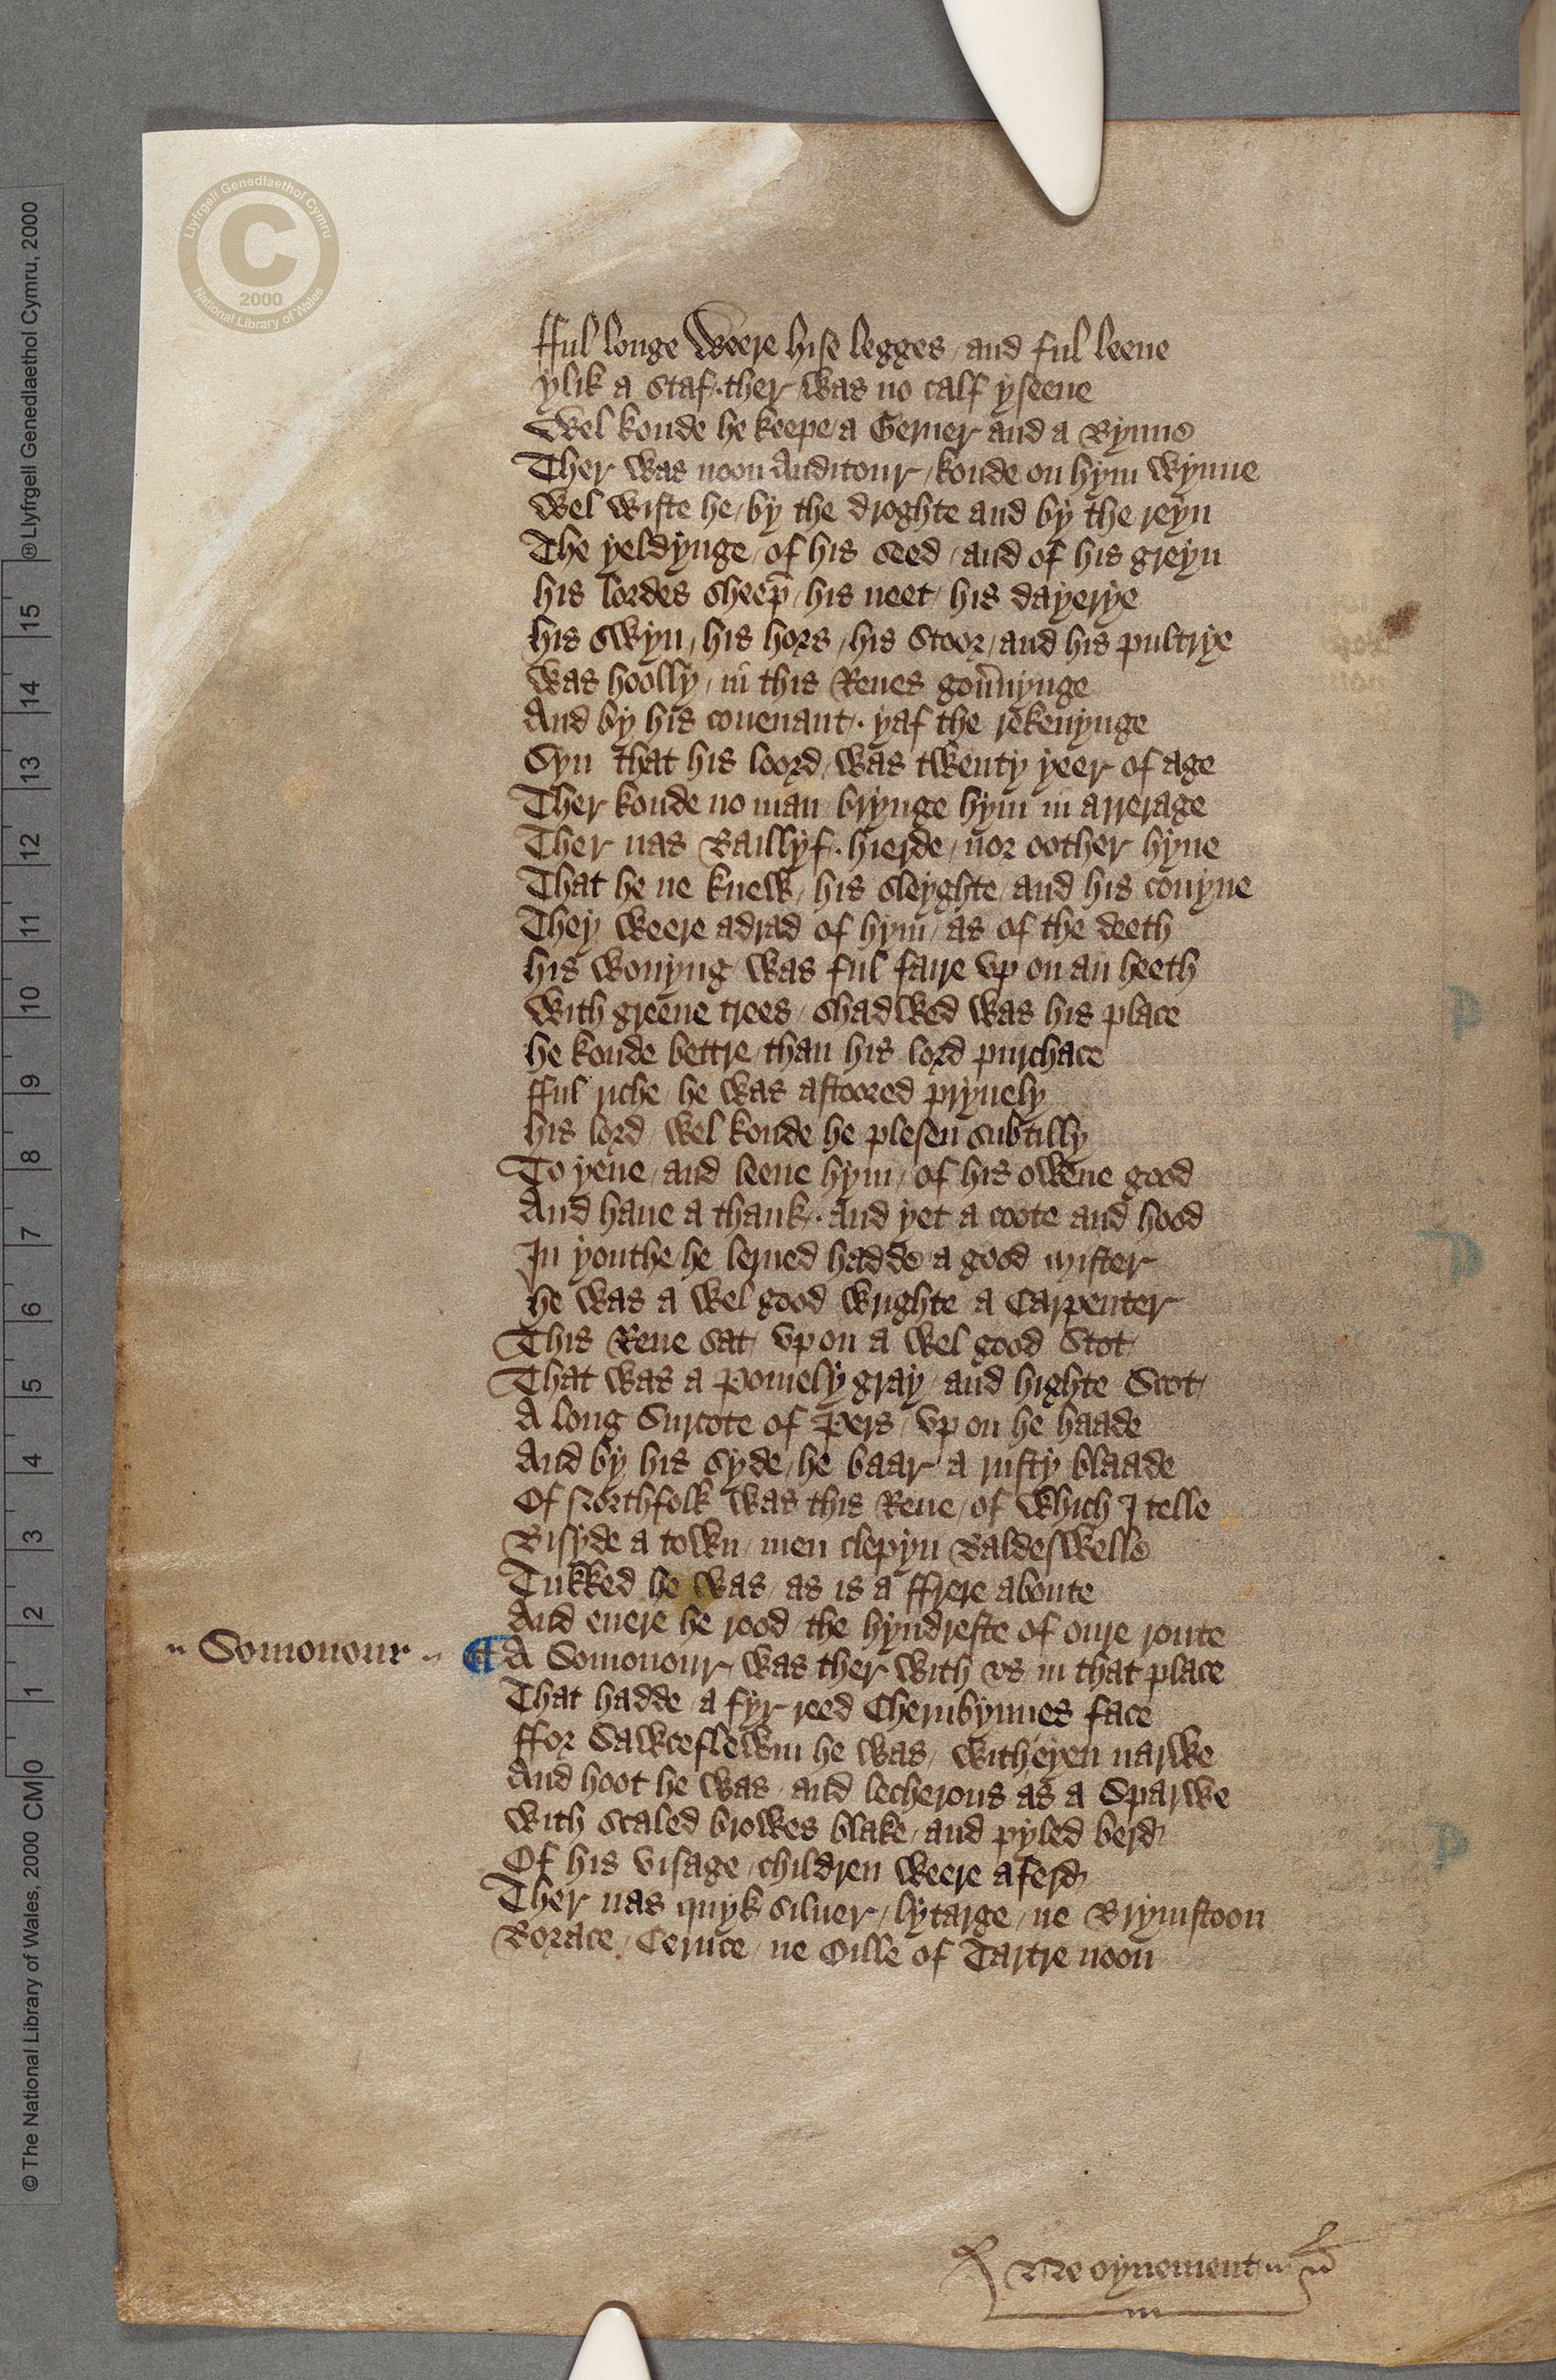 fful longe weere hise legges / and ful leene
ylik a staf · ther was no calf yseene
Wel koude he keepe / a Gerner and a Bynne
Ther was noon Auditour / koude on hym wynne
Wel wiste he / by the droghte and by the reyn
The yeldynge / of his seed / and of his greyn
his lordes sheep̄ / his neet / his dayerye
his swyn / his hors / his Stoor / and his pultrye
Was hoolly / in this Reues gou̅nynge
And by his couenant · yaf the rekenynge
Syn that his loord / was twenty yeer of age
Ther koude no man / brynge hym in arrerage
Ther nas Baillyf · hierde / nor oother hyne
That he ne knew / his sleyghte / and his couyne
They weere adrad of hym / as of the deeth
his wonyng / was ful faire vp on an heeth
With greene trees / shadwed was his place
he koude bettre / than his lord purchace
fful riche / he was astoored pryuely
his lord / wel koude he plesen subtilly
To yeue / and leene hym / of his owene good
And haue a thank · and yet a coote and hood
In youthe / he lerned hadde a good myster
he was a wel good wrighte a Carpenter
This Reue sat / vp on a wel good Stot
That was a Pomely gray / and highte Scot
A long Surcote of Pers / vp on he haade
And by his syde / he baar a rusty blaade
Of Northfolk was this Reue / of which I telle
Bisyde a town / men clepyn Baldeswelle
Tukked he was / as is a ffrere aboute
And euere he rood / the hyndreste of oure route
" Somonour " ¶ A Somonour / was ther with vs in that place
That hadde a fyr reed Cherubynnes face
ffor Sawceflewm he was / with eyen narwe
And hoot he was / and lecherous as a Sparwe
With scaled browes blake / and pyled berd
Of his visage / children weere aferd
Ther nas quyk siluer / lytarge / ne Brymstoon
Borace / Ceruce / ne Oille of Tartre noon
Ne oynement
® Llyfrgell Genedlaethol Cymru, 2000
15
14
13
12
11
10
9
8
7
6
5
4
3
2
1
CM 0
© The National Library of Wales, 2000
Llyfrgell Genedlaethol Cymru
C
2000
National Library of Wales